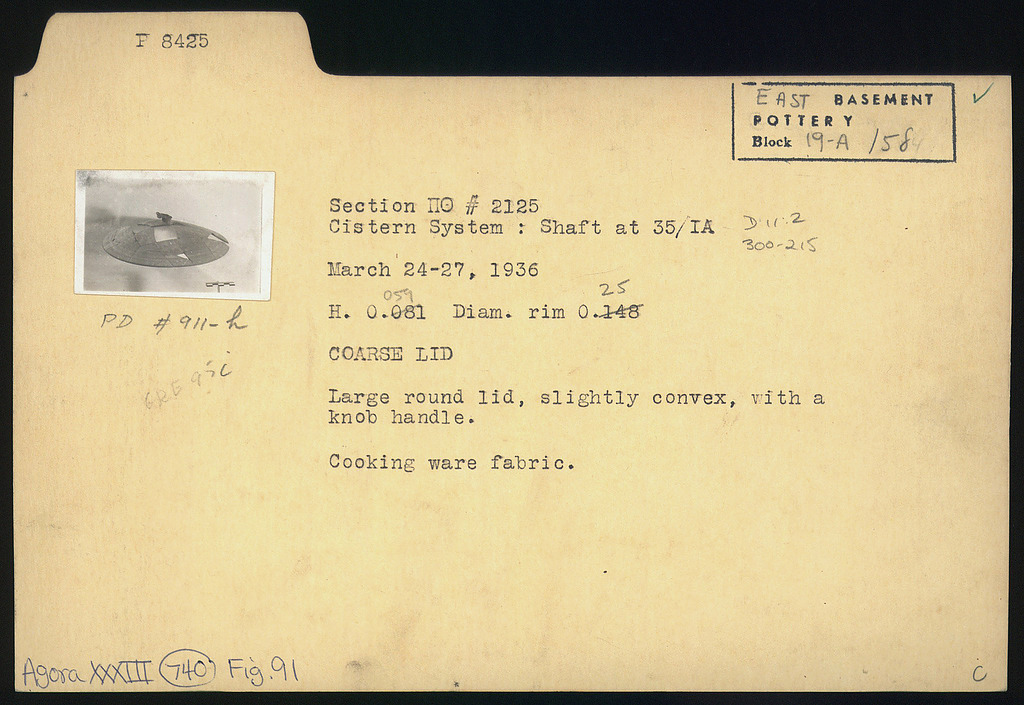 P 8425
EAST BASEMENT
POTTERY
Block 19-A /58
✓
Section ΠΘ # 2125
Cistern System : Shaft at 35/IA D 11:2
300-215
March 24-27, 1936
059 25
H. 0.081 Diam. rim 0.148
PD # 911-h
COARSE LID
Large round lid, slightly convex, with a
knob handle.
Cooking ware fabric.
Agora XXXIII 740 Fig. 91
C